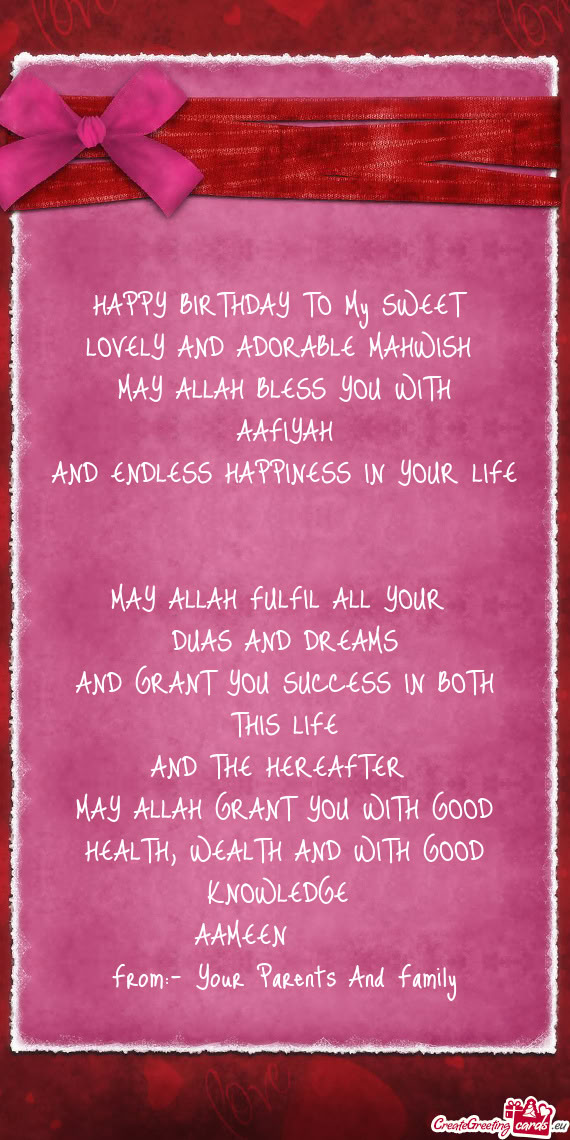 love
love
HAPPY BIRTHDAY TO My SWEET
LOVELY AND ADORABLE MAHWISH
MAY ALLAH BLESS YOU WITH
AAFIYAH
AND ENDLESS HAPPINESS IN YOUR LIFE
MAY ALLAH FULFIL ALL YOUR
DUAS AND DREAMS
AND GRANT YOU SUCCESS IN BOTH
THIS LIFE
AND THE HEREAFTER
MAY ALLAH GRANT YOU WITH GOOD
HEALTH, WEALTH AND WITH GOOD
KNOWLEDGE
AAMEEN
From:- Your Parents And Family
love
CreateGreetingcards.eu